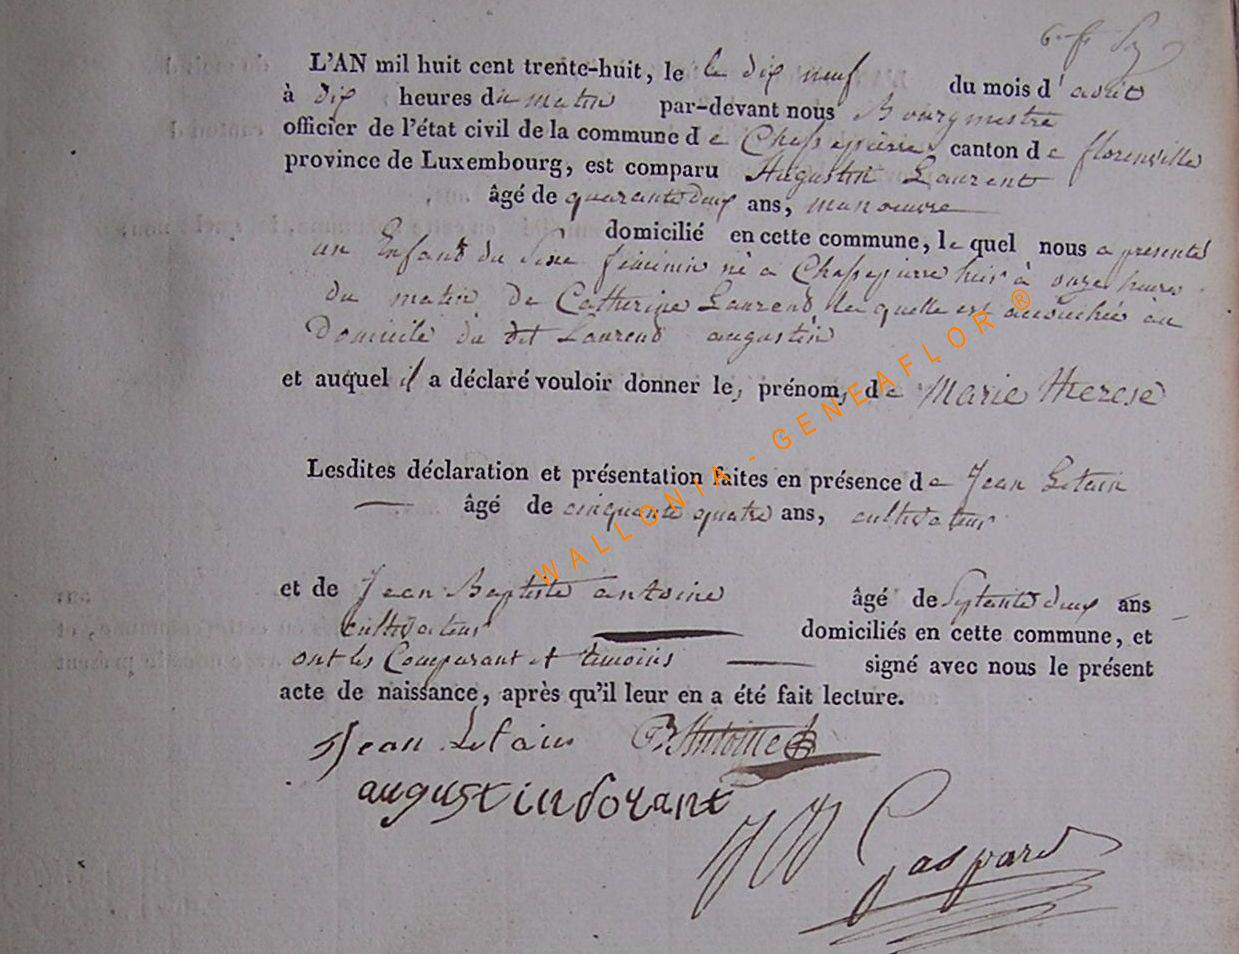 L'AN mil huit cent trente-huit, le le dix neuf du mois d'avril
à dix heures du matin par-devant nous Bourgmestre
officier de l'état civil de la commune de Chassepierre canton de florenville
province de Luxembourg, est comparu Augustin Laurent
âgé de quarante deux ans, manoeuvre
domicilié en cette commune, le quel nous a presenté
un Enfant du Sexe féminin né a Chassepierre hier à onze heures
du matin de Catherine Laurend, la quelle est accouchée au
Domicile du dit Laurend augustin
et auquel il a déclaré vouloir donner les prénoms de Marie therese
Lesdites déclaration et présentation faites en présence de Jean Letain
âgé de cinquante quatre ans, cultivateur
et de Jean Baptiste antoine âgé de Septante deux ans
cultivateur domiciliés en cette commune, et
ont les Comparant et témoins signé avec nous le présent
acte de naissance, après qu'il leur en a été fait lecture.
Jean Letain B Antoine
augustin
Gaspard
WALLONIA - GENEAFLOR ®